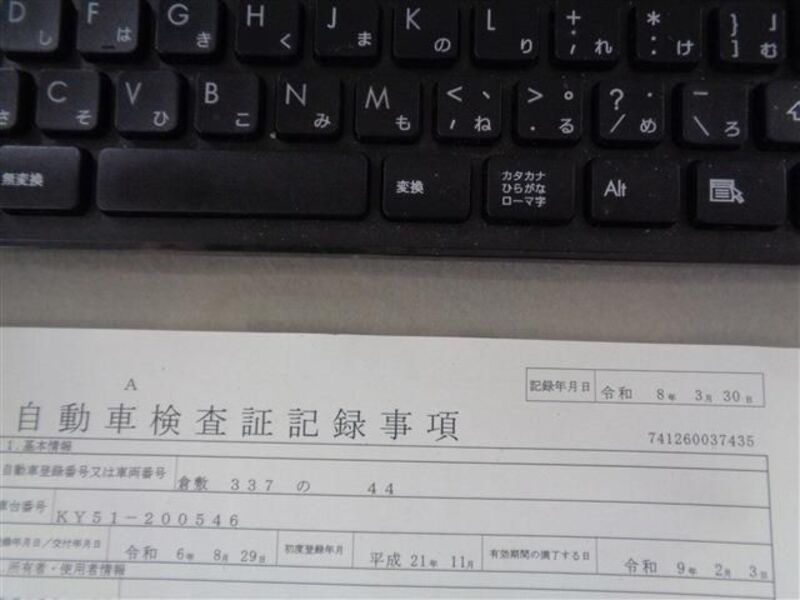 D し F は G き H く J ま K の L り + ; れ * : け } 」 ] む
さ C そ V ひ B こ N み M も < 、 , ね > 。 . る ? ・ / め _ \ ろ
無変換 変換 カタカナ ひらがな ローマ字 Alt
A
記録年月日 令和 8年 3月 30日
自動車検査証記録事項
741260037435
1.基本情報
自動車登録番号又は車両番号 倉敷 337 の 44
車台番号 KY51-200546
登録年月日/交付年月日 令和 6年 8月 29日 初度登録年月 平成 21年 11月 有効期間の満了する日 令和 9年 2月 3日
.所有者・使用者情報